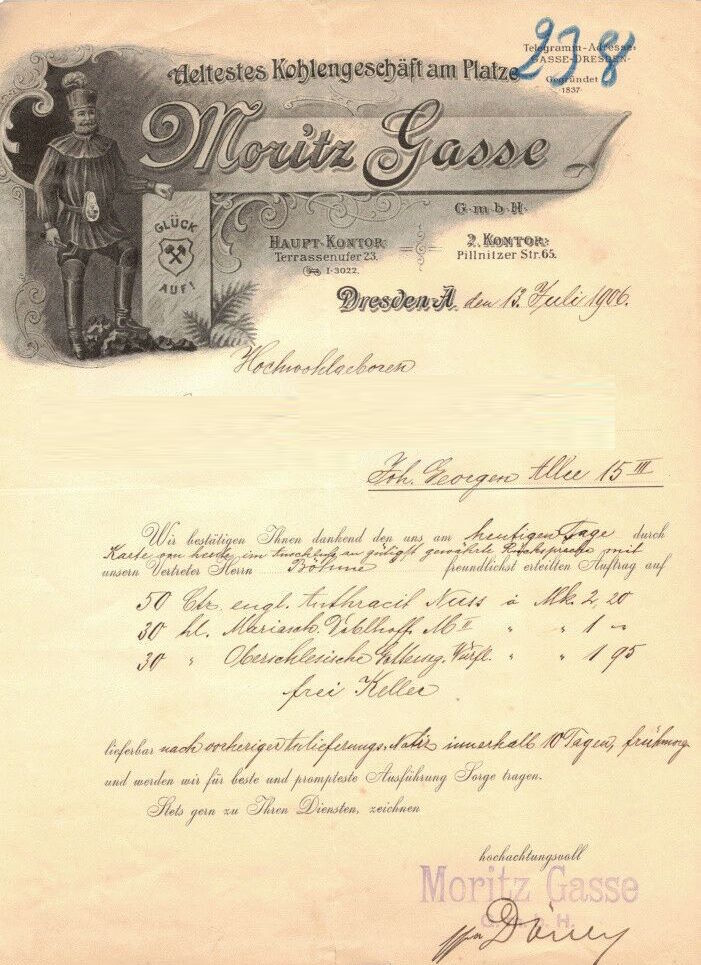 238
Telegramm-Adresse:
GASSE-DRESDEN.
Gegründet
1837
Aeltestes Kohlengeschäft am Platze
Moritz Gasse
G.m.b.H.
GLÜCK
AUF!
HAUPT-KONTOR
Terrassenufer 23.
I·3022.
2. KONTOR:
Pillnitzer Str. 65.
Dresden-A. den 13. Juli 1906.
Hochwohlgeboren
Joh. Georgen Allee 15 III
Wir bestätigen Ihnen dankend den uns am heutigen Tage durch
Karte von heute im gütigst gewährte Rücksprache mit
unsern Vertreter Herrn Böhme freundlichst erteilten Auftrag auf
50 Ctz. engl. Anthracit Nuss à Mk. 2,20
30 hl. Mariasch. M II " " 1 –
30 " Oberschlesische Würfl. " " 1 95
frei Keller
lieferbar nach vorheriger Anlieferungs-Notiz innerhalb 10 Tagen,
und werden wir für beste und prompteste Ausführung Sorge tragen.
Stets gern zu Ihren Diensten, zeichnen
hochachtungsvoll
Moritz Gasse
G.m.b.H.
ppa